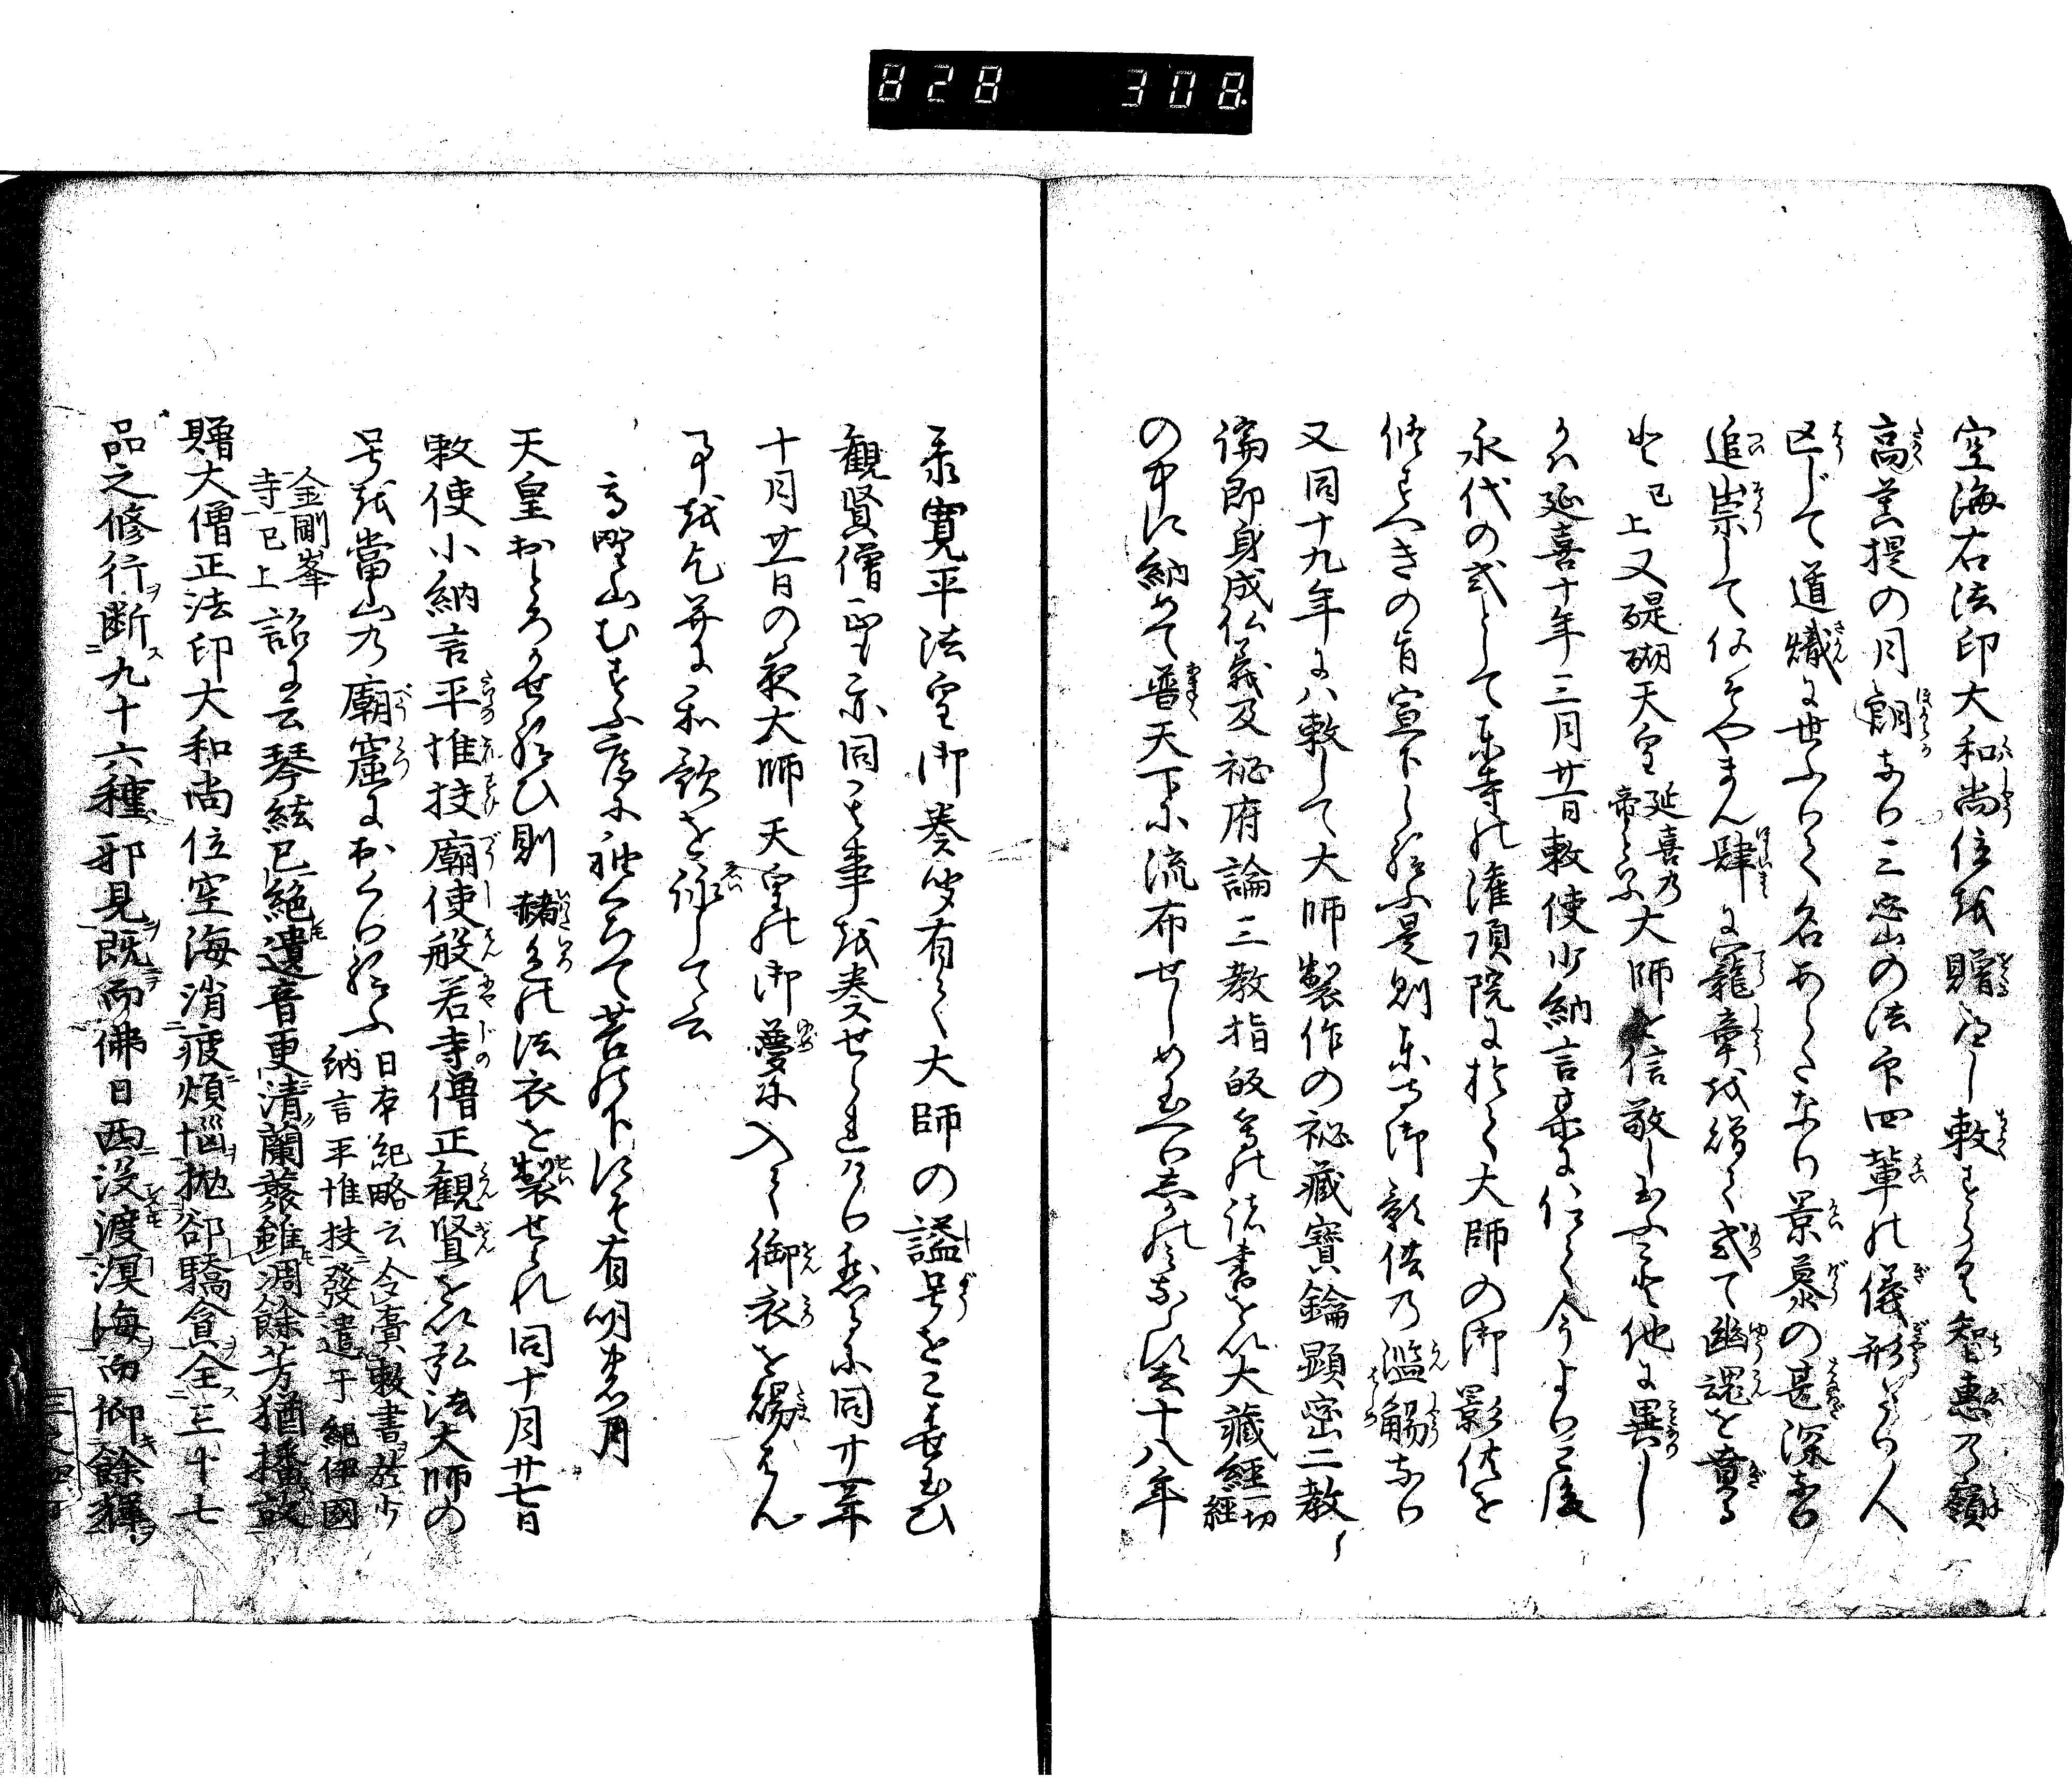 828 308
空海右法印大和尚位を贈るへし勅すらく智惠の嶺
高菩提の月朗なり三密の法命四輩の儀形たり人
亡じて道熾に世ふりて名あらたなり景慕の甚深なる
追崇して何そやまん肆に寵章を贈て式て幽魂を賁る
と 已上 又醍醐天皇 延喜の帝といふ 大師を信敬し玉ふこと他に異し
かハ延喜十年三月廿一日勅使少納言某に仰て今より已後
永代の式として東寺の潅頂院に於て大師の御影供を
修すへきの旨宣下し給ふ是則東寺御影供乃濫觴なり
又同十九年にハ勅して大師製作の祕藏寶鑰顕密二教
論即身成仏義及祕府論三教指皈等の諸書を以大藏經 一切經
の中に納めて普天下に流布せしめ玉へり
延十八年
寛平法皇御奏状有て大師の謚号をこはせ玉ひ
觀賢僧正も亦同く其事を奏せられけり
同廿一年
十月廿一日の夜大師天皇の御夢に入て御衣を賜はらん
事を乞并に和歌を詠して云
高野山むすふ庵に袖くちて苔の下にそ有明の月
天皇おとろかせ給ひ則赭色の法衣を製せられ同十月廿七日
敕使小納言平惟扶廟使般若寺僧正觀賢を以弘法大師の
号を當山乃廟窟におくり給ふ 日本紀略云令賷敕書於少納言平惟扶發遣于紀伊國
金剛峯寺已上 詔に云琴絃已絶遺音更清蘭蘂雖凋餘芳猶播故
贈大僧正法印大和尚位空海消疲煩惱抛却驕貪全三十七
品之修行断九十六種邪見既而佛日西没渡溟海而仰餘輝